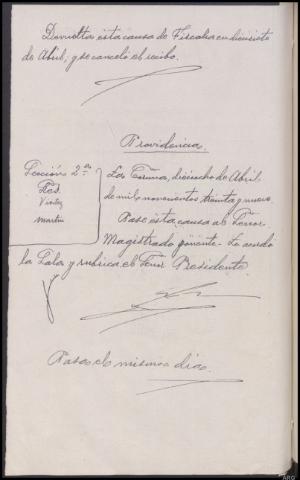 Devuelta esta causa de Fiscalia en diecisiete
de Abril, y se canceló el recibo.
Providencia.
Sección 2ª
Red.
Martin
La Coruña, dieciocho de Abril
de mil novecientos treinta y nueve
Pase esta causa al Señor
Magistrado ponente. Lo acordó
la Sala y rubrica el Señor Presidente.
Pasa el mismo dia.
ARG